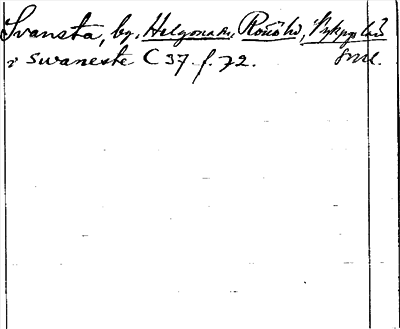 Svansta, by, Helgona sn, Rönö hd, Nyköp. län
i Swaneste C 37 f. 72. Sml.